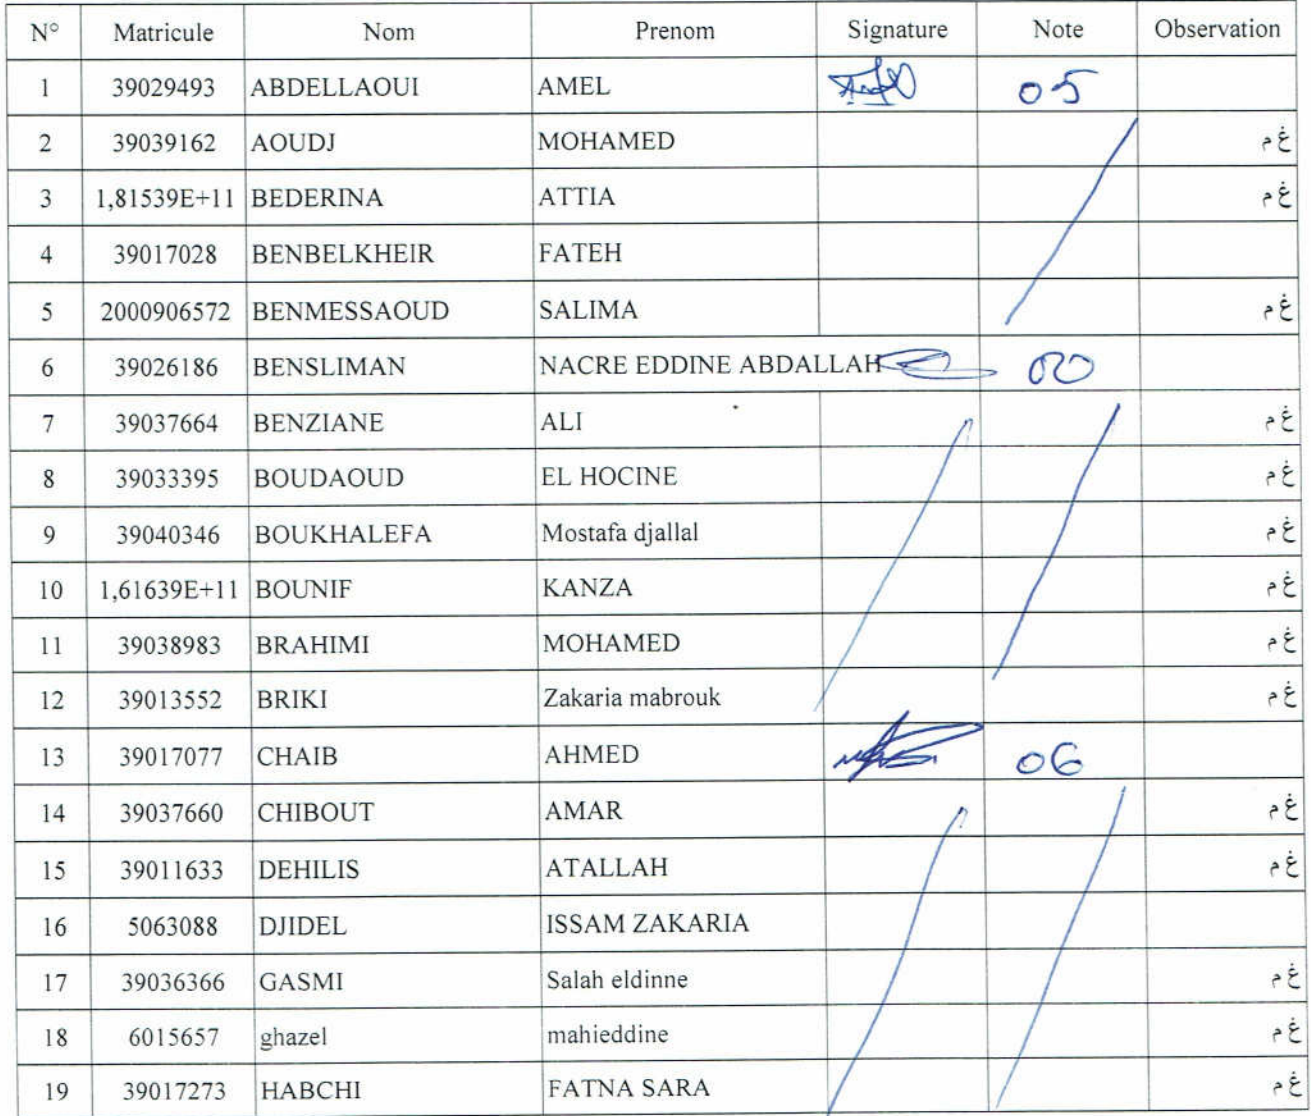 N° Matricule Nom Prenom Signature Note Observation
1 39029493 ABDELLAOUI AMEL 05
2 39039162 AOUDJ MOHAMED غ م
3 1,81539E+11 BEDERINA ATTIA غ م
4 39017028 BENBELKHEIR FATEH
5 2000906572 BENMESSAOUD SALIMA غ م
6 39026186 BENSLIMAN NACRE EDDINE ABDALLAH 00
7 39037664 BENZIANE ALI غ م
8 39033395 BOUDAOUD EL HOCINE غ م
9 39040346 BOUKHALEFA Mostafa djallal غ م
10 1,61639E+11 BOUNIF KANZA غ م
11 39038983 BRAHIMI MOHAMED غ م
12 39013552 BRIKI Zakaria mabrouk غ م
13 39017077 CHAIB AHMED 06
14 39037660 CHIBOUT AMAR غ م
15 39011633 DEHILIS ATALLAH غ م
16 5063088 DJIDEL ISSAM ZAKARIA
17 39036366 GASMI Salah eldinne غ م
18 6015657 ghazel mahieddine غ م
19 39017273 HABCHI FATNA SARA غ م